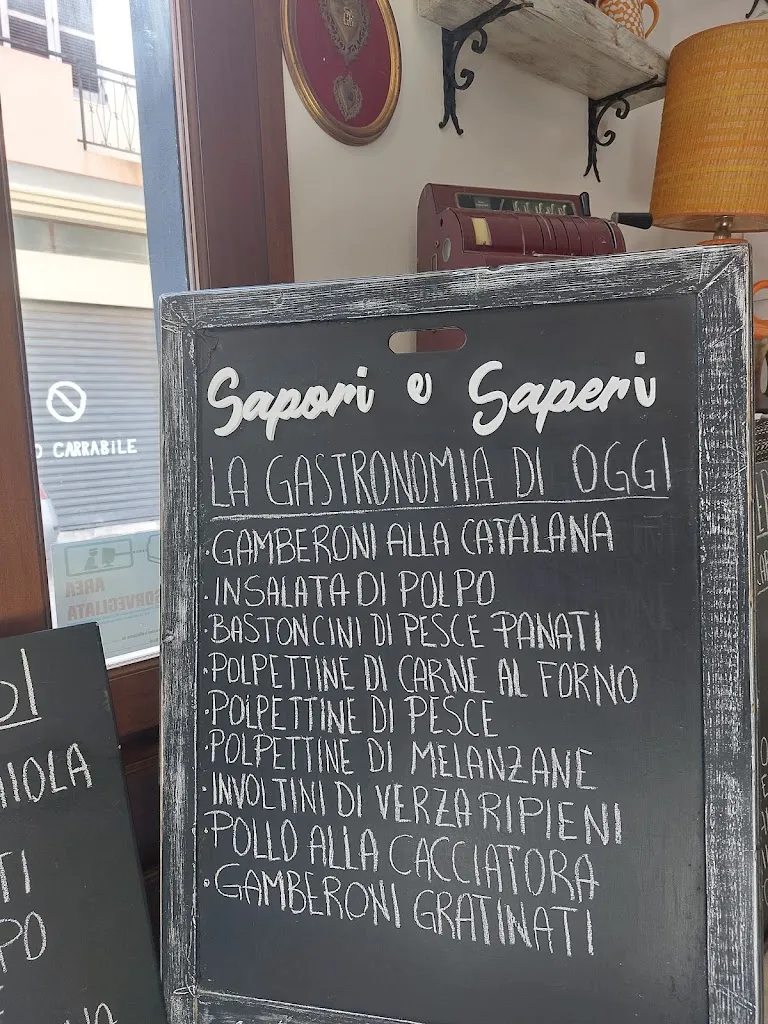 Sapori e Saperi
LA GASTRONOMIA DI OGGI
·GAMBERONI ALLA CATALANA
·INSALATA DI POLPO
·BASTONCINI DI PESCE PANATI
·POLPETTINE DI CARNE AL FORNO
·POLPETTINE DI PESCE
·POLPETTINE DI MELANZANE
·INVOLTINI DI VERZA RIPIENI
·POLLO ALLA CACCIATORA
·GAMBERONI GRATINATI
O CARRABILE
AREA
SORVEGLIATA
IOLA
TI
PO